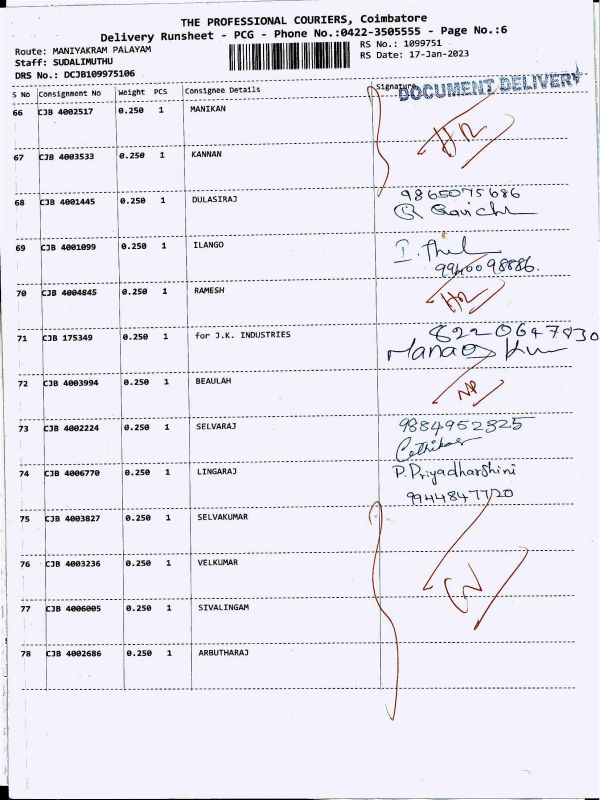 THE PROFESSIONAL COURIERS, Coimbatore
Delivery Runsheet - PCG - Phone No.:0422-3505555 - Page No.:6
Route: MANIYAKRAM PALAYAM
RS No.: 1099751
Staff: SUDALIMUTHU
RS Date: 17-Jan-2023
DRS No.: DCJB109975106
S No Consignment No Weight PCS Consignee Details Signature
DOCUMENT DELIVERY
66 CJB 4002517 0.250 1 MANIKAN
67 CJB 4003533 0.250 1 KANNAN
68 CJB 4001445 0.250 1 DULASIRAJ 9865075686
69 CJB 4001099 0.250 1 ILANGO
9940098886.
70 CJB 4004845 0.250 1 RAMESH
71 CJB 175349 0.250 1 for J.K. INDUSTRIES 8220647830
72 CJB 4003994 0.250 1 BEAULAH
73 CJB 4002224 0.250 1 SELVARAJ 9884952325
74 CJB 4006770 0.250 1 LINGARAJ P. Priyadharshini
9944847720
75 CJB 4003827 0.250 1 SELVAKUMAR
76 CJB 4003236 0.250 1 VELKUMAR
77 CJB 4006005 0.250 1 SIVALINGAM
78 CJB 4002686 0.250 1 ARBUTHARAJ